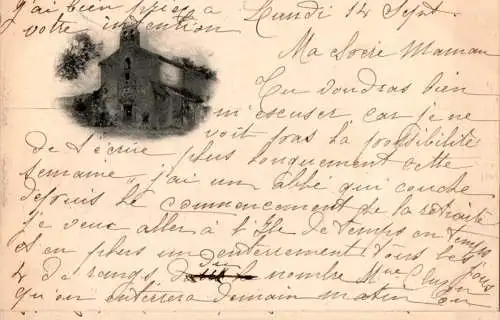 j'ai bien prié à
votre intention
Lundi 14 Sept.
Ma Maman
Tu voudras bien
m'excuser car je ne
vois pas la possibilité
de t'écrire plus longuement cette
semaine, j'ai un abbé qui couche
depuis le commencement de la retraite
je veux aller à l'Ile de temps en temps
et en plus un enterrement tous les jours
4 de rangs, du nombre Mme
qu'on enterrera demain matin on